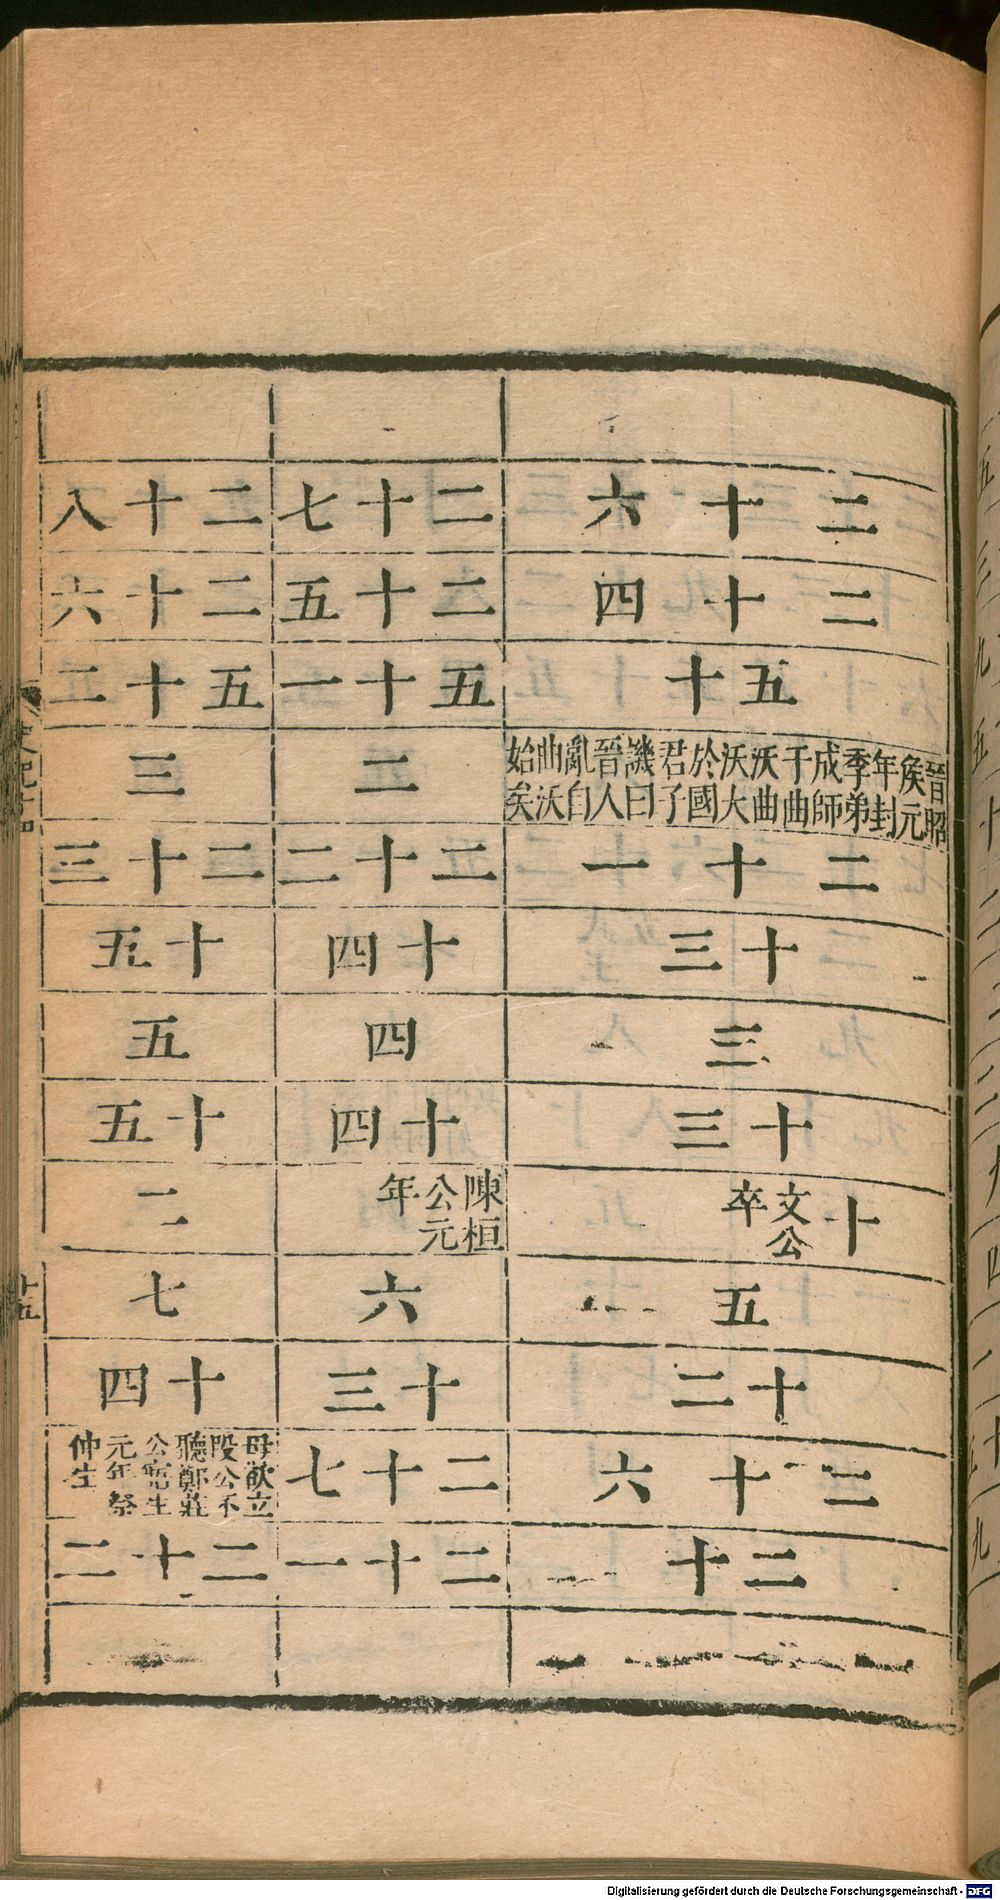 二十六
二十四
五十
晉昭
侯元
年封
季弟
成師
于曲
沃曲
沃大
於國
君子
譏曰
晉人
亂自
曲沃
始矣
二十一
十三
三
十三
十
文公
卒
五
十二
二十六
二十
二十七
二十五
五十一
二
二十二
十四
四
十四
陳桓
公元
年
六
十三
二十七
二十一
二十八
二十六
五十二
三
二十三
十五
五
十五
二
七
十四
母欲立
段公不
聽鄭莊
公寤生
元年祭
仲生
二十二
十五
Digitalisierung gefördert durch die Deutsche Forschungsgemeinschaft - DFG